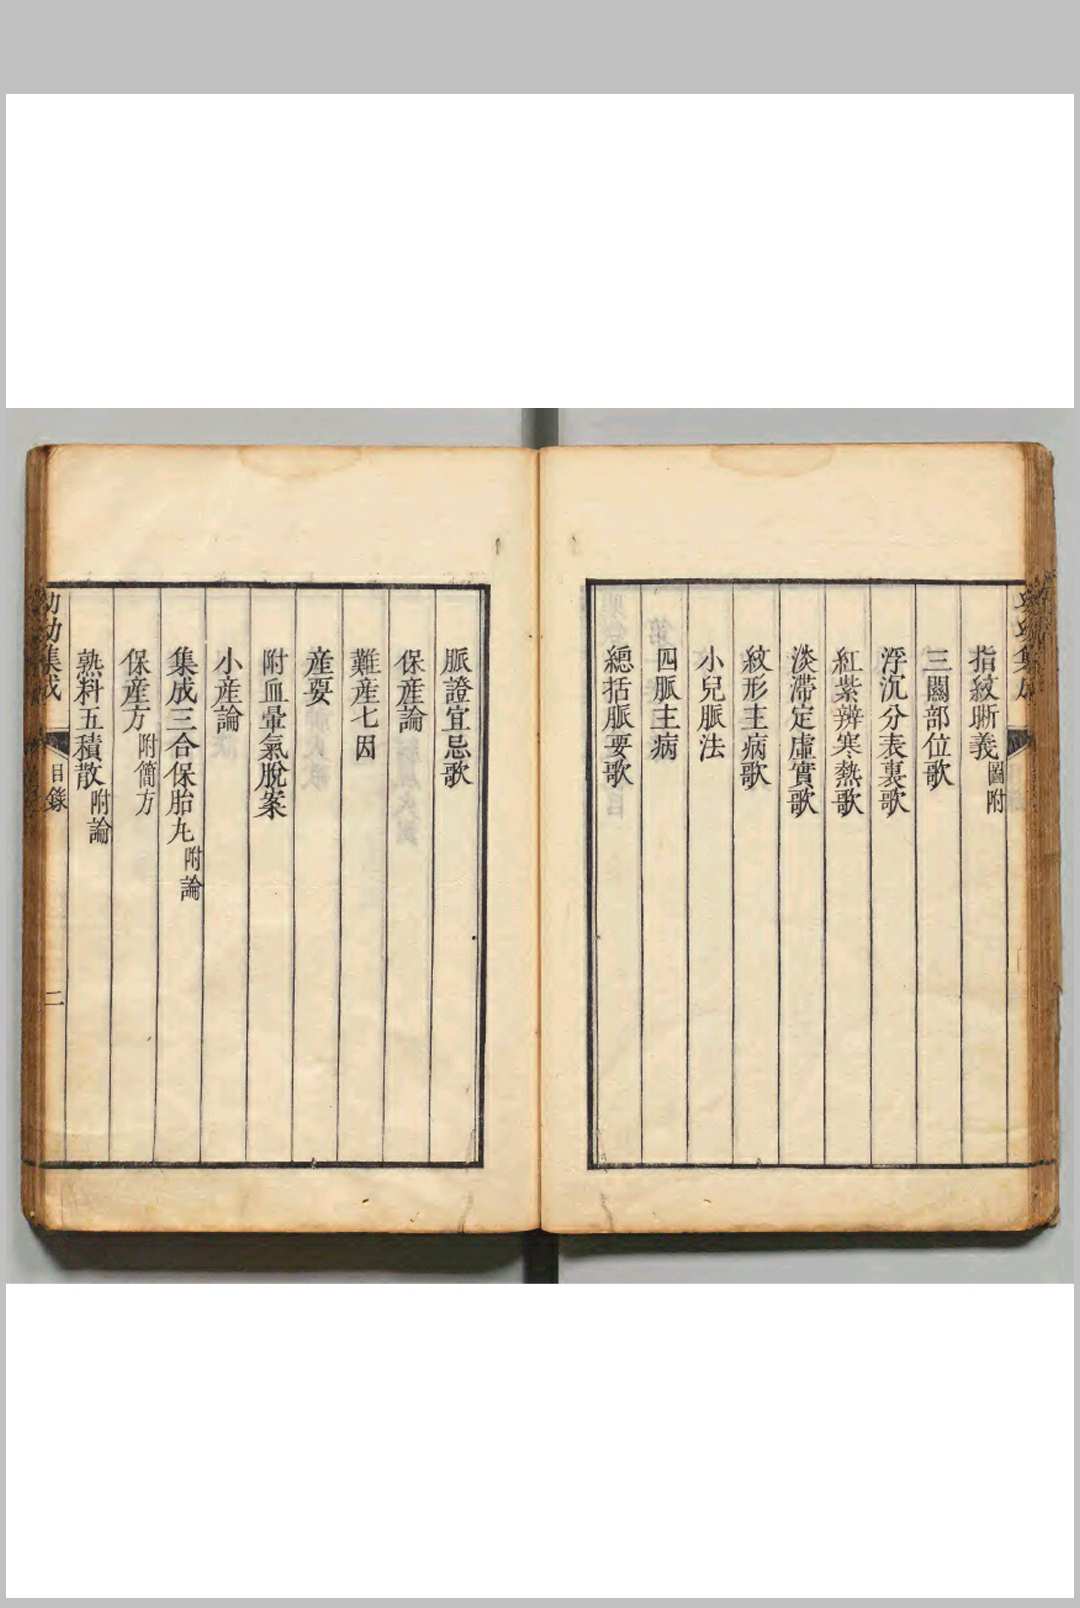 指紋晣義圖附
三關部位歌
浮沉分表裏歌
紅紫辨寒熱歌
淡滯定虛實歌
紋形主病歌
小兒脈法
四脈主病
總括脈要歌
脈證宜忌歌
保產論
難產七因
產要
附血暈氣脫案
小產論
集成三合保胎丸附論
保產方附簡方
熟料五積散附論
幼幼集成
目錄
二